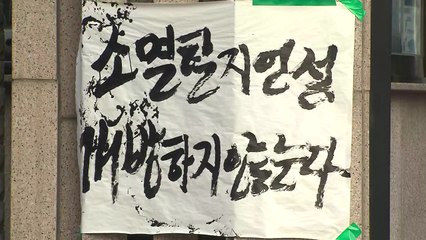 소멸할지언정
개방하지않는다